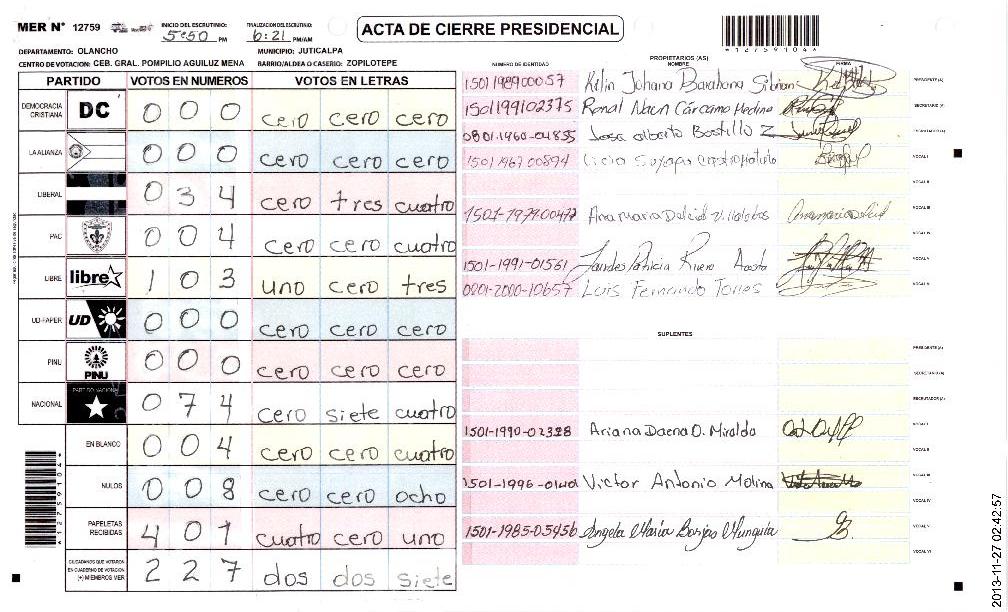 MER Nº 12759
INICIO DEL ESCRUTINIO: 5:50 PM
FINALIZACION DEL ESCRUTINIO: 6:21 PM/AM
ACTA DE CIERRE PRESIDENCIAL
*1275910 4*
DEPARTAMENTO: OLANCHO MUNICIPIO: JUTICALPA
CENTRO DE VOTACION: CEB. GRAL. POMPILIO AGUILUZ MENA BARRIO/ALDEA O CASERIO: ZOPILOTEPE
PARTIDO VOTOS EN NUMEROS VOTOS EN LETRAS
DEMOCRACIA CRISTIANA DC 0 0 0 cero cero cero
LA ALIANZA 0 0 0 cero cero cero
LIBERAL 0 3 4 cero tres cuatro
PAC 0 0 4 cero cero cuatro
LIBRE libre 1 0 3 uno cero tres
UD-FAPER UD 0 0 0 cero cero cero
PINU PINU 0 0 0 cero cero cero
NACIONAL PARTIDO NACIONAL 0 7 4 cero siete cuatro
EN BLANCO 0 0 4 cero cero cuatro
NULOS 0 0 8 cero cero ocho
PAPELETAS RECIBIDAS 4 0 1 cuatro cero uno
CIUDADANOS QUE VOTARON EN CUADERNO DE VOTACION (+) MIEMBROS MER 2 2 7 dos dos siete
PROPIETARIOS (AS)
NUMERO DE IDENTIDAD NOMBRE FIRMA
1501198900057 Kelin Johana Barahona Sibrian PRESIDENTE(A)
1501199102375 Ronal Naun Cárcamo Medina SECRETARIO(A)
0801-1960-04835 Jose alberto Bostillo Z ESCRUTADOR(A)
1501 1967 00894 VOCAL I
VOCAL II
1501-1979-00477 Ana maria VOCAL III
VOCAL IV
1501-1991-01561 Lourdes Patricia Rivera Acosta VOCAL V
0201-2000-10657 Luis Fernando Torres VOCAL VI
SUPLENTES
PRESIDENTE(A)
SECRETARIO(A)
ESCRUTADOR(A)
1501-1990-02328 Ariana Daena O. Miralda VOCAL I
VOCAL II
1501-1996- Victor Antonio Molina VOCAL III
VOCAL IV
1501-1985-05456 Angela Maria Borjas Munguia VOCAL V
VOCAL VI
2013-11-27 02:42:57